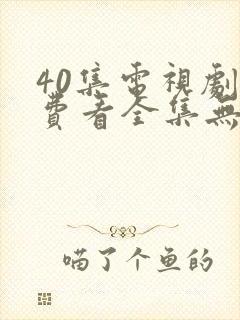 40集電視劇
費看全集無
喵了个鱼的